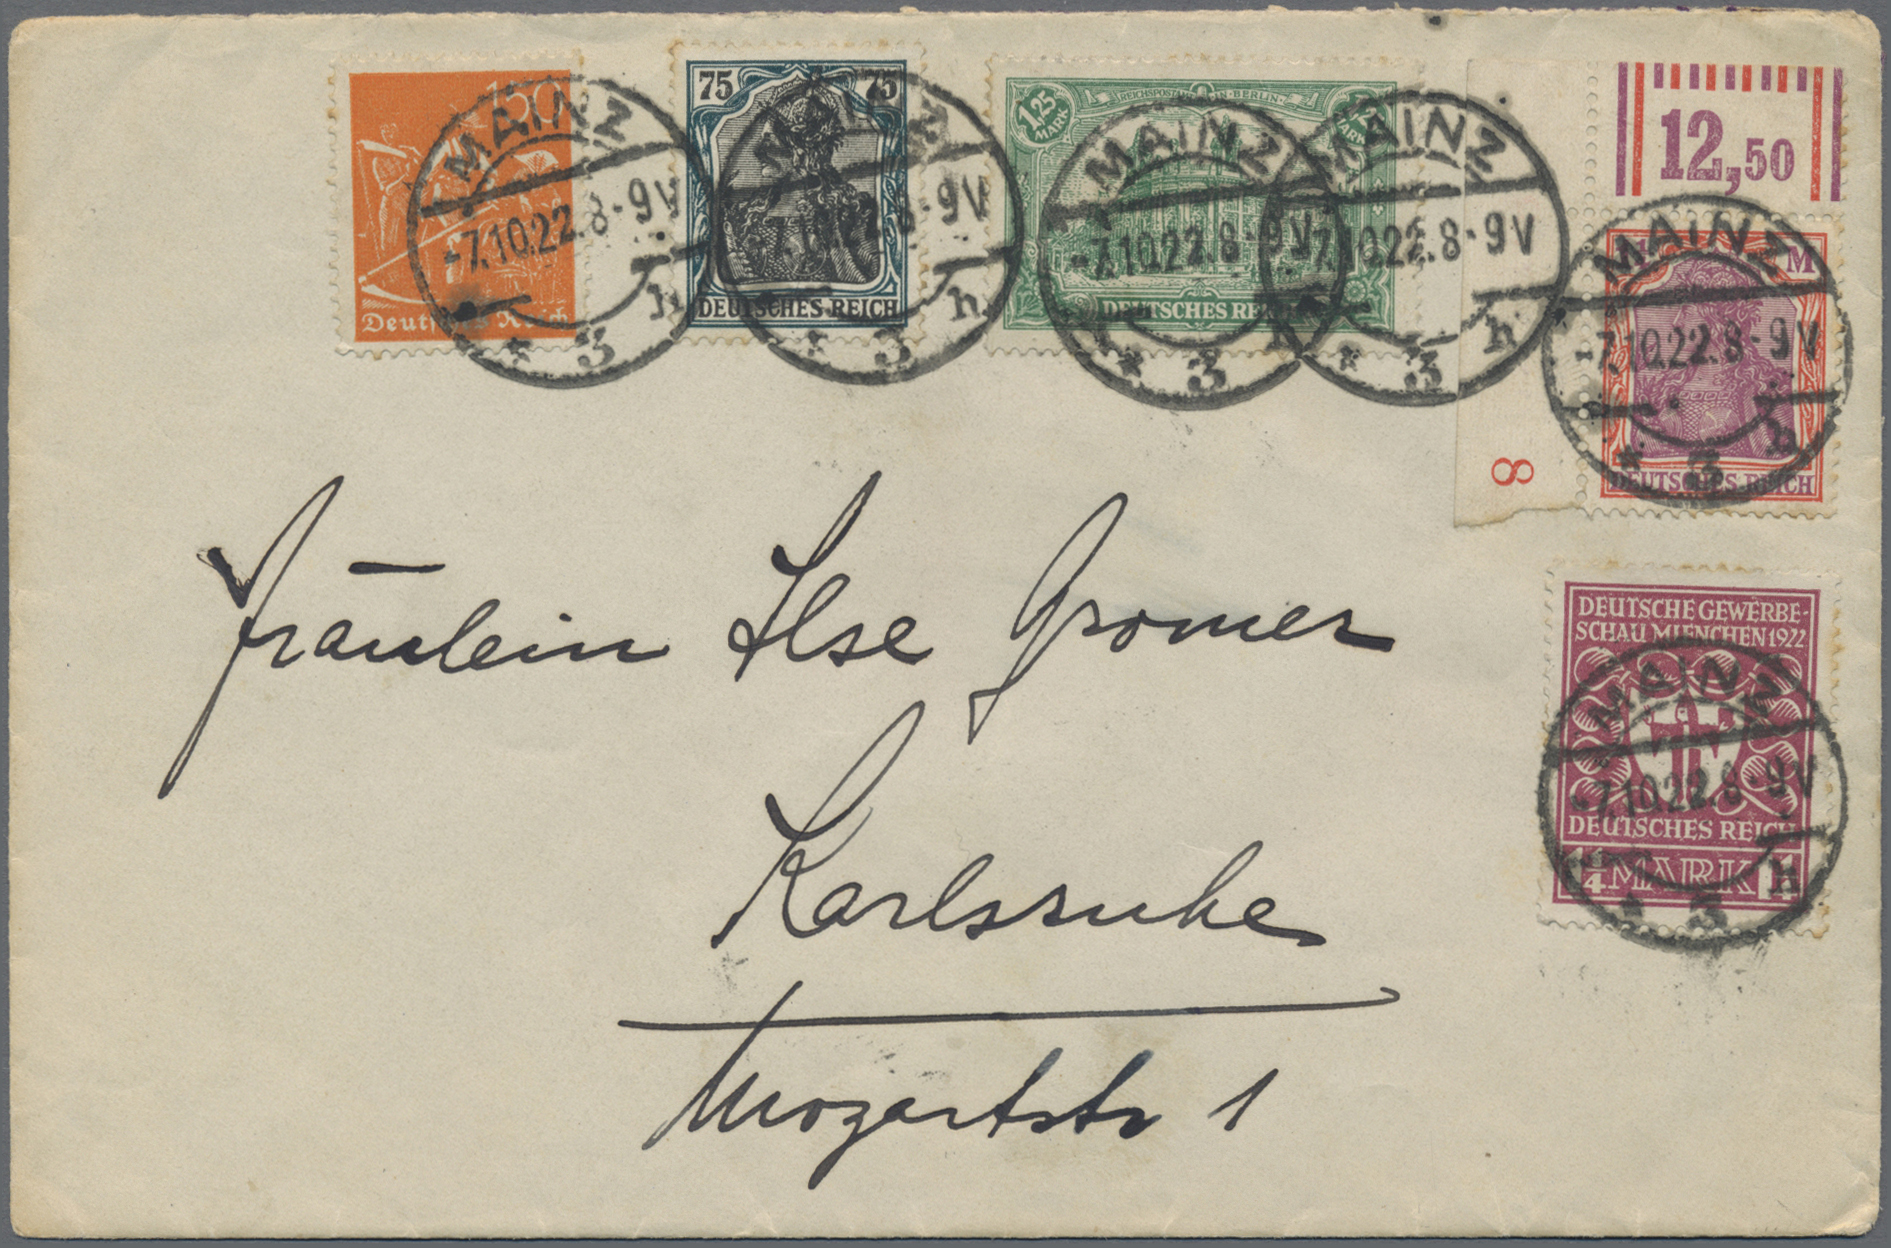 150
Deutsches Reich
75 75
DEUTSCHES REICH
REICHSPOSTAMT IN BERLIN
1,25 MARK 1,25 MARK
DEUTSCHES REICH
12,50
M
DEUTSCHES REICH
8
DEUTSCHE GEWERBE-
SCHAU MUENCHEN 1922
DEUTSCHES REICH
1¼ MARK 1¼
MAINZ
-7.10.22.8-9V
* 3 h
MAINZ
-7.10.22.8-9V
* 3 h
MAINZ
-7.10.22.8-9V
* 3 h
MAINZ
-7.10.22.8-9V
* 3 h
MAINZ
-7.10.22.8-9V
* 3 h
MAINZ
-7.10.22.8-9V
* 3 h
Fräulein Ilse Gromer
Karlsruhe
Mozartstr 1